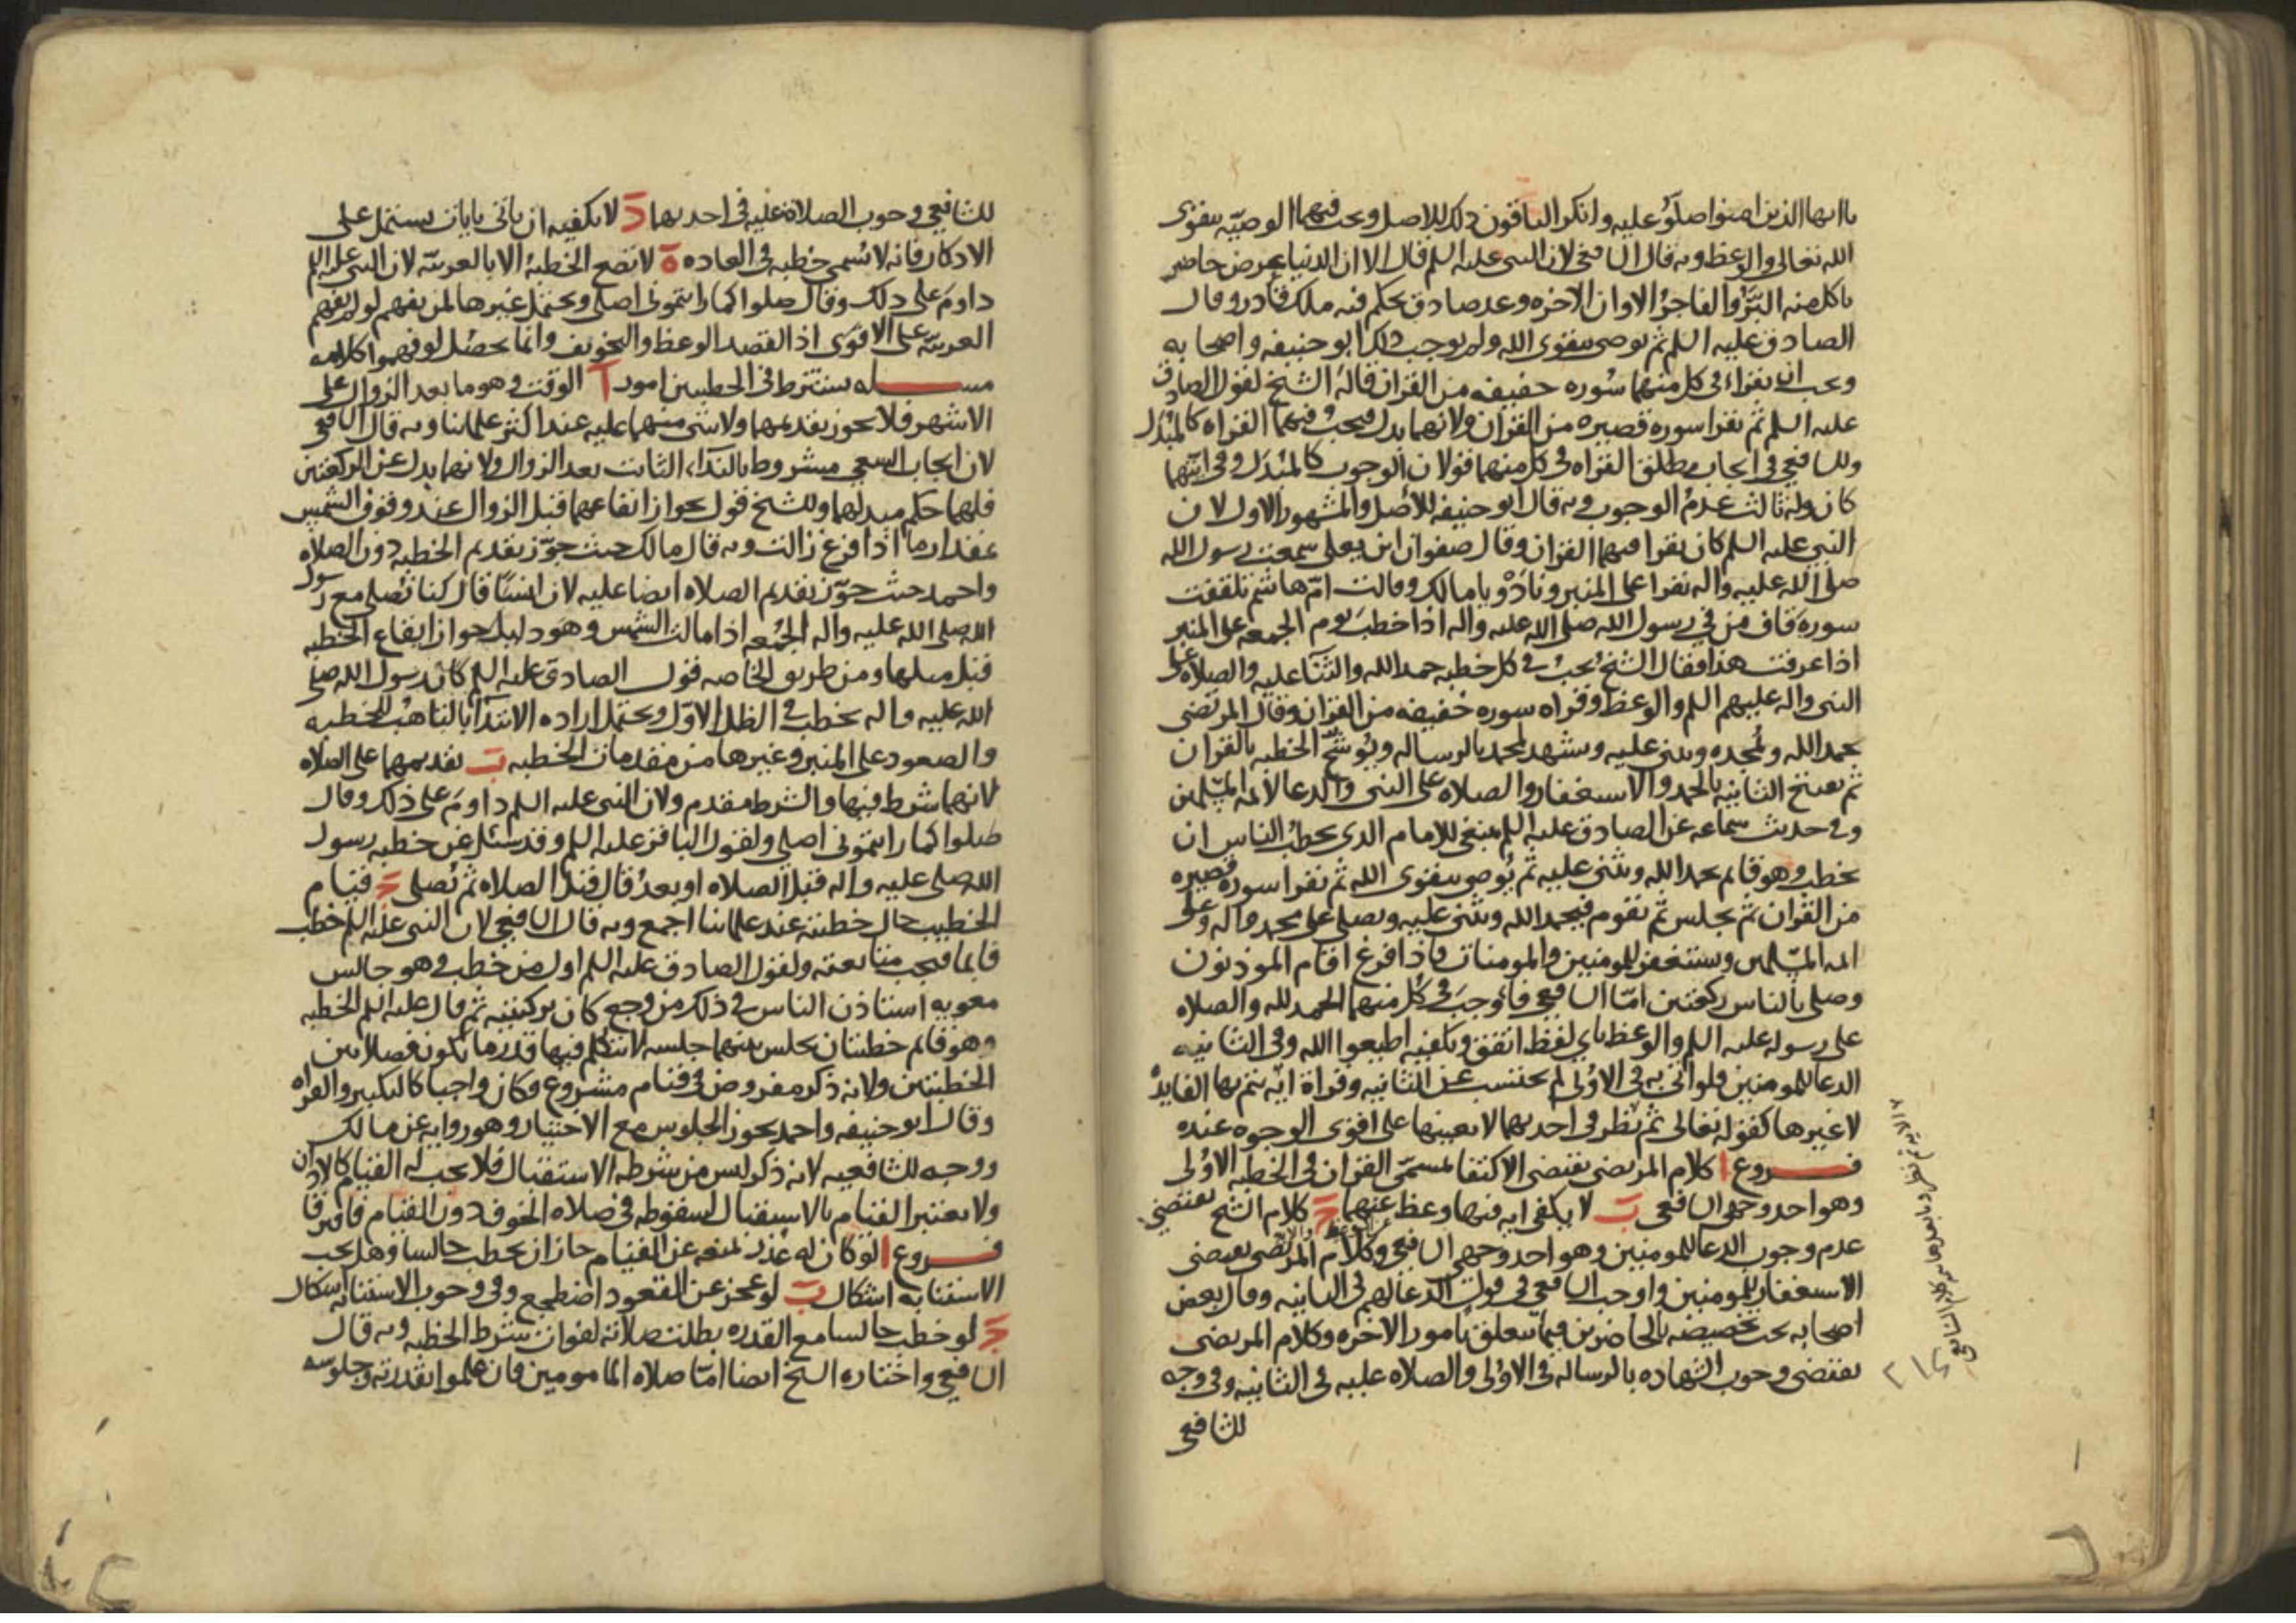 ياايها الذين امنوا صلوا عليه وانكر الباقون ذلك للاصل ويجب فيهما الوصيه بتقوى
الله تعالى والوعظ وبه قال الشافعي لان النبي عليه السلم قال الا ان الدنيا عرض حاضر
ياكل منه البر والفاجر الا وان الاخره وعد صادق يحكم فيه ملك قادر وقال
الصادق عليه السلم ثم يوصي بتقوى الله ولم يوجب ذلك ابو حنيفه واصحابه
ويجب ان يقراء في كل منهما سوره خفيفه من القران قاله الشيخ لقول الصادق
عليه السلم ثم يقرا سوره قصيره من القران ولانهما بدل فيجب فيهما القراه كالمبدل
وللشافعي في ايجاب مطلق القراه في كل منهما قولان الوجوب كالمبدل وفي ايتهما
كان وله ثالث عدم الوجوب وبه قال ابو حنيفه للاصل والمشهور الاول لان
النبي عليه السلم كان يقرا فيهما القران وقال صفوان ابن يعلى سمعت رسول الله
صلى الله عليه واله يقرا على المنبر ونادوا يا مالك وقالت ام هاشم تلقفت
سورة قاف من في رسول الله صلى الله عليه واله اذا خطب يوم الجمعه على المنبر
اذا عرفت هذا فقال الشيخ يجب في كل خطبه حمد الله والثنا عليه والصلاه على
النبي واله عليهم السلم والوعظ وقراه سوره خفيفه من القران وقال المرتضى
يحمد الله ويمجده ويثني عليه ويشهد لمحمد بالرساله ويوشح الخطبه بالقران
ثم يفتتح الثانيه بالحمد والاستغفار والصلاه على النبي والدعا لائمه المسلمين
وفي حديث سماعه عن الصادق عليه السلم ينبغي للامام الذي يخطب الناس ان
يخطب وهو قائم يحمد الله ويثني عليه ثم يوصي بتقوى الله ثم يقرا سوره قصيره
من القران ثم يجلس ثم يقوم فيحمد الله ويثني عليه ويصلي على محمد واله وعلى
ائمه المسلمين ويستغفر للمومنين والمومنات فاذا فرغ اقام الموذنون
وصلى بالناس ركعتين اما الشافعي فاوجب في كل منهما الحمد لله والصلاه
على رسوله عليه السلم والوعظ باي لفظ اتفق ويكفيه اطيعوا الله وفي الثانيه
الدعا للمومنين فلو اتى به في الاولى لم يحتسب عن الثانيه وقراة ايه يتم بها الفايدة
لا غيرها كقوله تعالى ثم نظر في احديهما لا بعينها على اقوى الوجوه عنده
فـــروع ا كلام المرتضى يقتضي الاكتفا بمسمى القران في الخطبه الاولى
وهو احد وجهي الشافعي ب لا يكفي ايه فيها وعظ عنهما ج كلام الشيخ يقتضي
عدم وجوب الدعا للمومنين وهو احد وجهي الشافعي وكلام المرتضى يقتضي
الاستغفار للمومنين واوجب الشافعي في قول الدعا لهم في الثانيه وقال بعض
اصحابه يجب تخصيصه بالحاضرين فيما يتعلق بامور الاخره وكلام المرتضى
يقتضي وجوب الشهاده بالرساله في الاولى والصلاه عليه في الثانيه وفي وجه
للشافعي
الايه ثم نظر وما بعدها من كلام الشافعي
للشافعي وجوب الصلاة عليه في احديهما د لا يكفيه ان ياتي بايات يشتمل على
الاذكار فانه لا يسمى خطبه في العاده ه لا تصح الخطبه الا بالعربيه لان النبي عليه السلم
داوم على ذلك وقال صلوا كما رايتموني اصلي ويحتمل غيرها لمن يفهم لو لم يفهم
العربيه على الاقوى اذ القصد الوعظ والتخويف وانما يحصل لو فهموا كلامه
مســـله يشترط في الخطبتين امور ا الوقت وهو ما بعد الزوال على
الاشهر فلا يجوز تقديمهما ولا شي منهما عليه عند اكثر علمائنا وبه قال الشافعي
لان ايجاب السعي مشروط بالندآء الثابت بعد الزوال ولانهما بدل عن الركعتين
فلهما حكم مبدلهما وللشيخ قول بجواز ايقاعهما قبل الزوال عند وقوف الشمس
بمقدار ما اذا فرغ زالت وبه قال مالك حيث جوز تقديم الخطبه دون الصلاه
واحمد حيث جوز تقديم الصلاه ايضا عليه لان انسا قال كنا نصلي مع رسول
الله صلى الله عليه واله الجمعه اذا مالت الشمس وهو دليل جواز ايقاع الخطبه
قبل ميلها ومن طريق الخاصه قول الصادق عليه السلم كان رسول الله صلى
الله عليه واله يخطب في الظل الاول ويحتمل اراده الابتدآ بالتاهب للخطبه
والصعود على المنبر وغيرها من مقدمات الخطبه ب تقديمهما على الصلاه
لانهما شرط فيها والشرط مقدم ولان النبي عليه السلم داوم على ذلك وقال
صلوا كما رايتموني اصلي ولقول الباقر عليه السلم وقد سئل عن خطبه رسول
الله صلى عليه واله قبل الصلاه او بعد قال قبل الصلاه ثم يصلي ج قيام
الخطيب حال خطبته عند علمائنا اجمع وبه قال الشافعي لان النبي عليه السلم خطب
قائما فيجب متابعته ولقول الصادق عليه السلم اول من خطب وهو جالس
معويه استاذن الناس في ذلك من وجع كان بركبتيه ثم قال عليه السلم الخطبه
وهو قائم خطبتان يجلس بينهما جلسه لا يتكلم فيها قدر ما يكون فصلا بين
الخطبتين ولانه ذكر مفروض في قيام مشروع فكان واجبا كالتكبير والقراه
وقال ابو حنيفه واحمد يجوز الجلوس مع الاختيار وهو روايه عن مالك
ووجه للشافعيه لانه ذكر ليس من شرطه الاستقبال فلا يجب له القيام كالاذان
ولا يعتبر القيام بالاستقبال لسقوطه في صلاه الخوف دون القيام فافترقا
فـــروع ا لو كان له عذر يمنعه عن القيام جاز ان يخطب جالسا وهل يجب
الاستنابه اشكال ب لو عجز عن القعود اضطجع وفي وجوب الاستنابه اشكال
ج لو خطب جالسا مع القدره بطلت صلاته لفوات شرط الخطبه وبه قال
الشافعي واختاره الشيخ ايضا اما صلاه المامومين فان علموا بقدرته وجلوسه